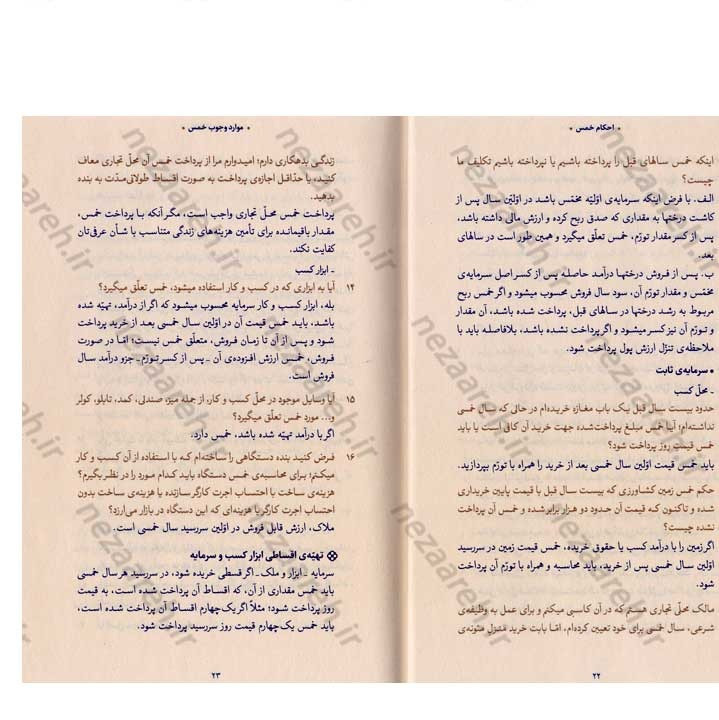 • احکام خمس •
اینکه خمس سالهای قبل را پرداخته باشیم یا نپرداخته باشیم تکلیف ما
چیست؟
الف. با فرض اینکه سرمایه‌ی اوّلیّه مخمّس باشد در اوّلین سال پس از
کاشت درختها به مقداری که صدق ربح کرده و ارزش مالی داشته باشد،
پس از کسر مقدار تورّم، خمس تعلّق میگیرد و همین طور است در سالهای
بعد.
ب. پس از فروش درختها درآمد حاصله پس از کسر اصل سرمایه‌ی
مخمّس و مقدار تورّم آن، سود سال فروش محسوب میشود و اگر خمس ربح
مربوط به رشد درختها در سالهای قبل، پرداخت شده باشد، آن مقدار
و تورّم آن نیز کسر میشود و اگر پرداخت نشده باشد، بلافاصله باید با
ملاحظه‌ی تنزّل ارزش پول پرداخت شود.
• سرمایه‌ی ثابت
ـ محلّ کسب
حدود بیست سال قبل یک باب مغازه خریده‌ام در حالی که سال خمسی
نداشته‌ام؛ آیا خمس مبلغ پرداخت‌شده جهت خرید آن کافی است یا باید
خمس قیمت روز پرداخت شود؟
باید خمس قیمت اوّلین سال خمسی بعد از خرید را همراه با تورّم بپردازید.
حکم خمس زمین کشاورزی که بیست سال قبل با قیمت پایین خریداری
شده و تاکنون که قیمت آن حدود دو هزار برابر شده و خمس آن پرداخت
نشده چیست؟
اگر زمین را با درآمد کسب یا حقوق خریده، خمس قیمت زمین در سررسید
اوّلین سال خمسی پس از خرید، باید محاسبه و همراه با تورّم آن پرداخت
شود.
مالک محلّی تجاری هستم که در آن کاسبی میکنم و برای عمل به وظیفه‌ی
شرعی، سال خمسی برای خود تعیین کرده‌ام، امّا بابت خرید منزل مئونه‌ی
۲۲
• موارد وجوب خمس •
زندگی بدهکاری دارم؛ امیدوارم مرا از پرداخت خمس آن محلّ تجاری معاف
کنید، یا حدّاقل اجازه‌ی پرداخت به صورت اقساط طولانی‌مدّت به بنده
بدهید.
پرداخت خمس محلّ تجاری واجب است، مگر آنکه با پرداخت خمس،
مقدار باقیمانده برای تأمین هزینه‌های زندگی متناسب با شأن عرفی‌تان
کفایت نکند.
ـ ابزار کسب
۱۴ آیا به ابزاری که در کسب و کار استفاده میشود، خمس تعلّق میگیرد؟
بله، ابزار کسب و کار سرمایه محسوب میشود که اگر از درآمد، تهیّه شده
باشد، باید خمس قیمت آن در اوّلین سال خمسی بعد از خرید پرداخت
شود و پس از آن تا زمان فروش، متعلّق خمس نیست؛ امّا در صورت
فروش، خمس ارزش افزوده‌ی آن ـ پس از کسر تورّم ـ جزو درآمد سال
فروش است.
۱۵ آیا وسایل موجود در محلّ کسب و کار، از جمله میز، صندلی، کمد، تابلو، کولر
و... مورد خمس تعلّق میگیرد؟
اگر با درآمد تهیّه شده باشد، خمس دارد.
۱۶ فرض کنید بنده دستگاهی را ساخته‌ام که با استفاده از آن کسب و کار
میکنم؛ برای محاسبه‌ی خمس دستگاه باید کدام مورد را در نظر بگیرم؟
هزینه‌ی ساخت با احتساب اجرت کارگر سازنده یا هزینه‌ی ساخت بدون
احتساب اجرت کارگر یا هزینه‌ای که این دستگاه در بازار می‌ارزد؟
ملاک، ارزش قابل فروش در اوّلین سررسید سال خمسی است.
تهیّه‌ی اقساطی ابزار کسب و سرمایه
سرمایه ـ ابزار و ملک ـ اگر قسطی خریده شود، در سررسید هر سال خمسی
باید خمس مقداری از آن، که اقساط آن پرداخت شده است، به قیمت
روز پرداخت شود؛ مثلاً اگر یک‌چهارم اقساط آن پرداخت شده است،
باید خمس یک‌چهارم قیمت روز سررسید پرداخت شود.
۲۳
nezaareh.ir